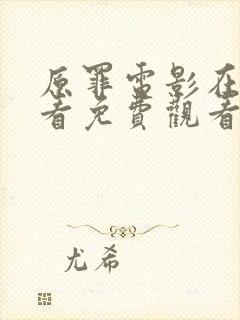 原罪電影在
看免費觀看
尤希